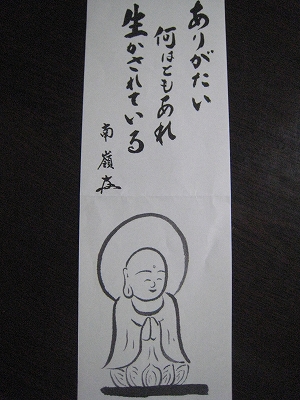 ありがたい
何はともあれ
生かされている
南嶺